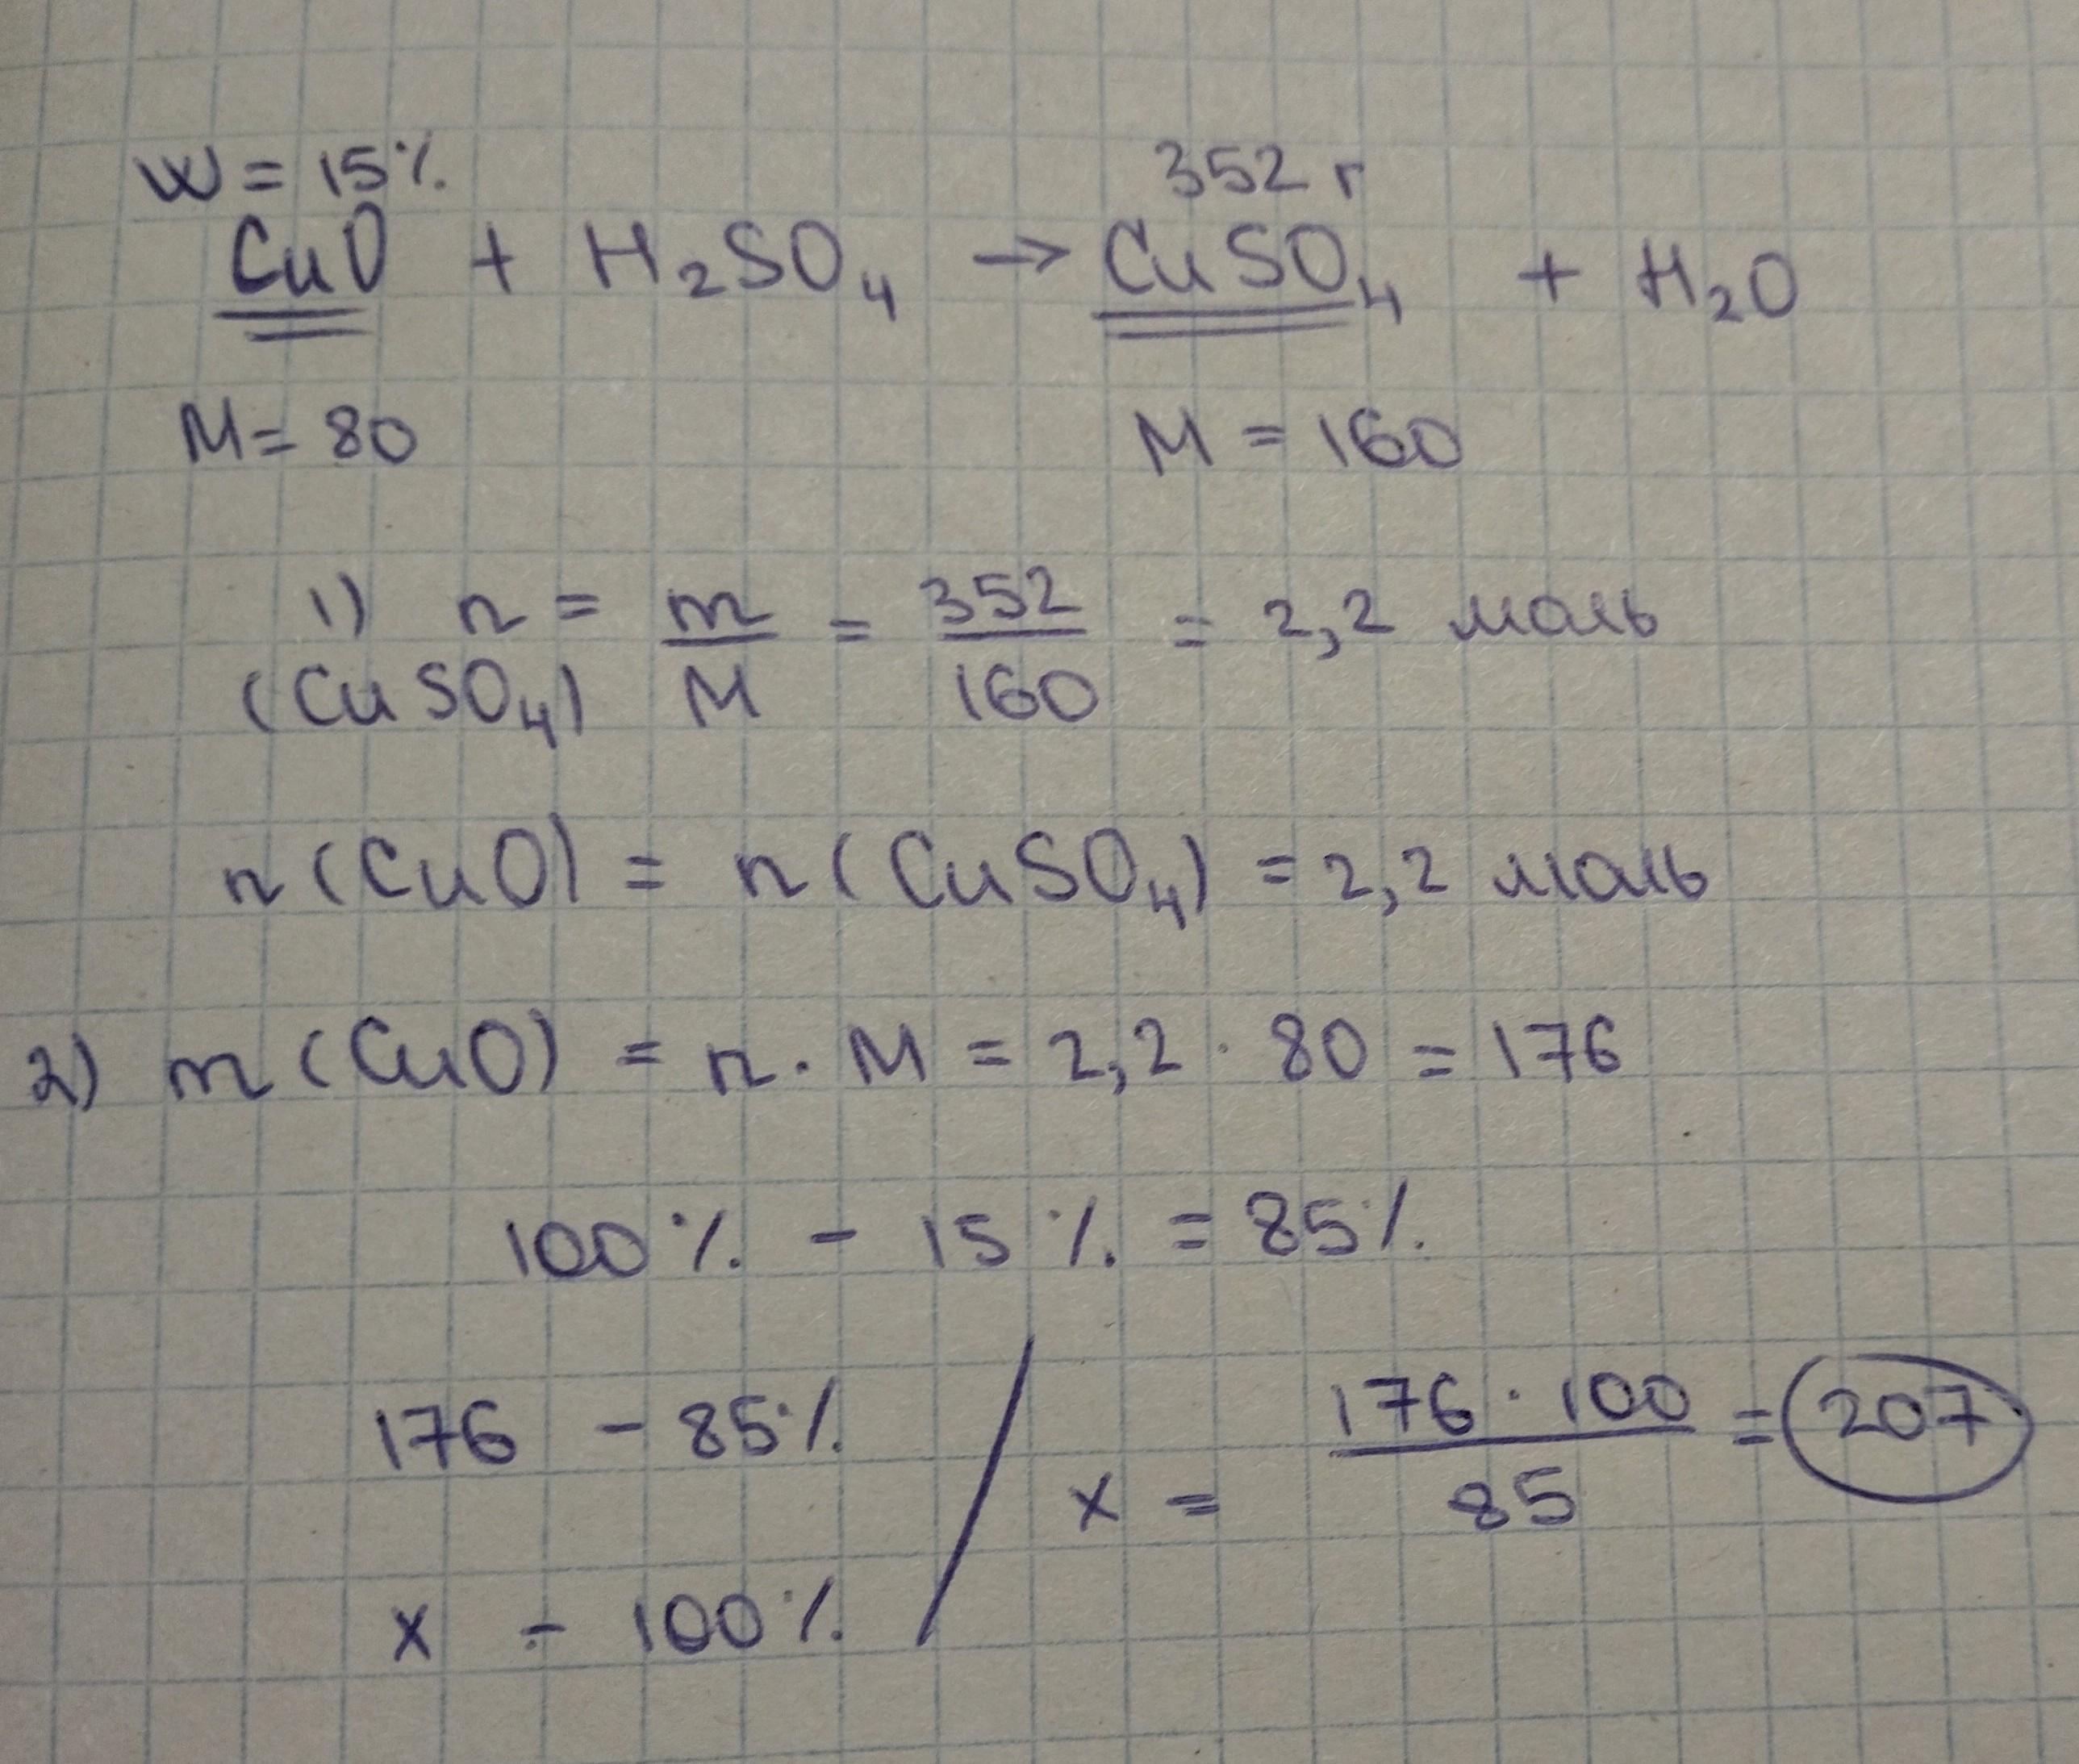 W = 15% 352 г
CuO + H₂SO₄ → CuSO₄ + H₂O
M = 80 M = 160
1) n = m/M = 352/160 = 2,2 моль
(CuSO₄)
n(CuO) = n(CuSO₄) = 2,2 моль
2) m(CuO) = n · M = 2,2 · 80 = 176
100% - 15% = 85%
176 - 85% / x = 176 · 100/85 = 207
x - 100%